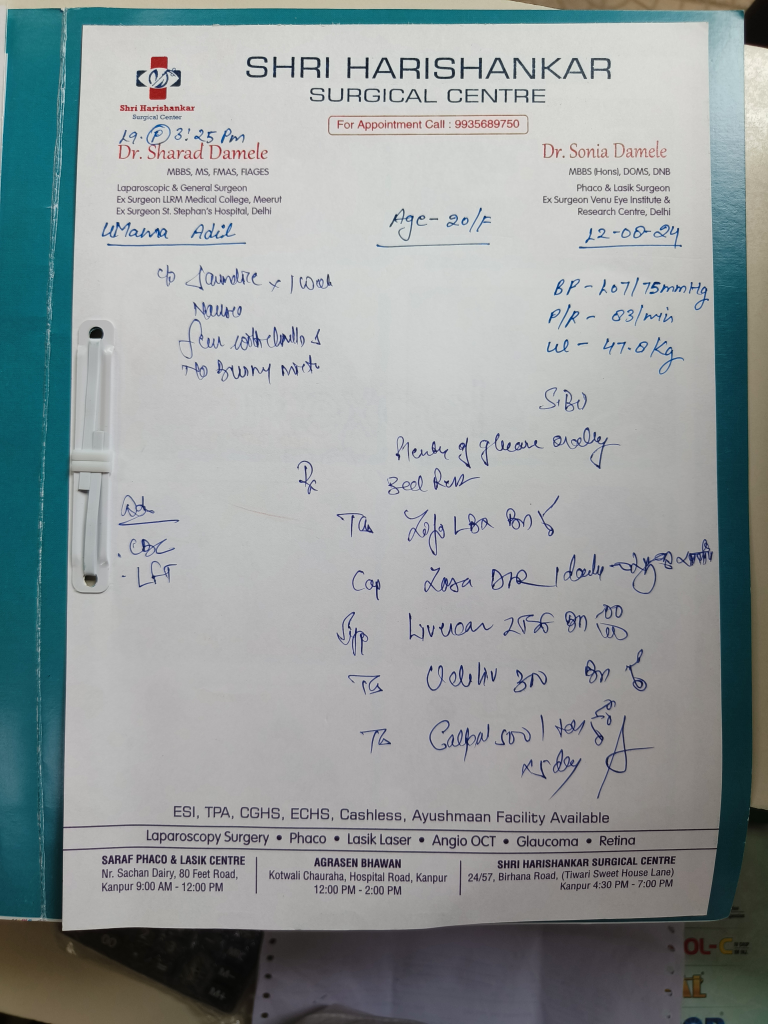 SHRI HARISHANKAR
SURGICAL CENTRE
Shri Harishankar
Surgical Center
For Appointment Call : 9935689750
19. P 3:25 Pm
Dr. Sharad Damele
MBBS, MS, FMAS, FIAGES
Laparoscopic & General Surgeon
Ex Surgeon LLRM Medical College, Meerut
Ex Surgeon St. Stephan's Hospital, Delhi
Dr. Sonia Damele
MBBS (Hons), DOMS, DNB
Phaco & Lasik Surgeon
Ex Surgeon Venu Eye Institute &
Research Centre, Delhi
UMama Adil
Age- 20/F
12-08-24
c/o Jaundice x 1 week
Nausea
BP - 107/75mmHg
P/R - 83/min
wt - 47.8 Kg
Plenty of glucose orally
Rx
Bed Rest
Adv
. CBC
- LFT
Tab
Cap
1 daily
Syp
Tab 300
Tab Calpol 500 1
x 5 day
ESI, TPA, CGHS, ECHS, Cashless, Ayushmaan Facility Available
Laparoscopy Surgery • Phaco • Lasik Laser • Angio OCT • Glaucoma • Retina
SARAF PHACO & LASIK CENTRE
Nr. Sachan Dairy, 80 Feet Road,
Kanpur 9:00 AM - 12:00 PM
AGRASEN BHAWAN
Kotwali Chauraha, Hospital Road, Kanpur
12:00 PM - 2:00 PM
SHRI HARISHANKAR SURGICAL CENTRE
24/57, Birhana Road, (Tiwari Sweet House Lane)
Kanpur 4:30 PM - 7:00 PM